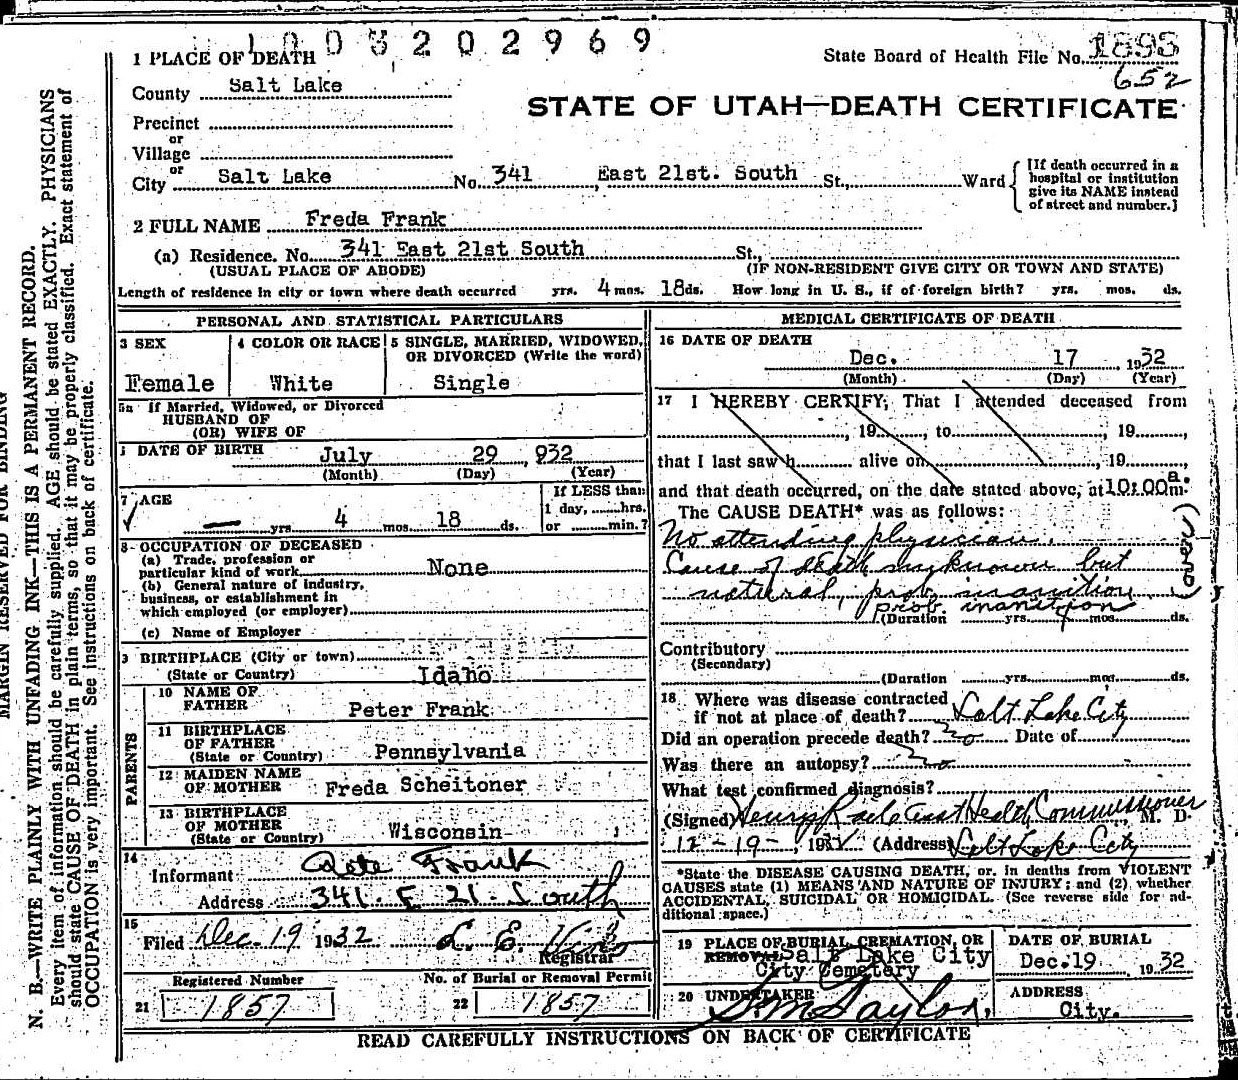 1003202969
1 PLACE OF DEATH
State Board of Health File No. 1898
652
County Salt Lake
STATE OF UTAH—DEATH CERTIFICATE
Precinct
or
Village
or
City Salt Lake No. 341 East 21st. South St., Ward
[If death occurred in a
hospital or institution
give its NAME instead
of street and number.]
2 FULL NAME Freda Frank
(a) Residence. No. 341 East 21st South St.,
(USUAL PLACE OF ABODE) (IF NON-RESIDENT GIVE CITY OR TOWN AND STATE)
Length of residence in city or town where death occurred yrs. 4 mos. 18 ds. How long in U. S., if of foreign birth? yrs. mos. ds.
PERSONAL AND STATISTICAL PARTICULARS
3 SEX
Female
4 COLOR OR RACE
White
5 SINGLE, MARRIED, WIDOWED,
OR DIVORCED (Write the word)
Single
5a If Married, Widowed, or Divorced
HUSBAND OF
(OR) WIFE OF
DATE OF BIRTH
July 29 932
(Month) (Day) (Year)
7 AGE
yrs 4 mos. 18 ds.
If LESS than
1 day, hrs.
or min.?
8 OCCUPATION OF DECEASED
(a) Trade, profession or
particular kind of work None
(b) General nature of industry,
business, or establishment in
which employed (or employer)
(c) Name of Employer
9 BIRTHPLACE (City or town)
(State or Country) Idaho
PARENTS
10 NAME OF
FATHER Peter Frank
11 BIRTHPLACE
OF FATHER
(State or Country) Pennsylvania
12 MAIDEN NAME
OF MOTHER Freda Scheitoner
13 BIRTHPLACE
OF MOTHER
(State or Country) Wisconsin
14
Informant Pete Frank
Address 341 E 21 South
15
Filed Dec. 19 1932 L. E.
Registrar
Registered Number
21 1857
No. of Burial or Removal Permit
22 1857
MEDICAL CERTIFICATE OF DEATH
16 DATE OF DEATH
Dec. 17 1932
(Month) (Day) (Year)
17 I HEREBY CERTIFY, That I attended deceased from
, 19 , to , 19 ,
that I last saw h alive on , 19 ,
and that death occurred, on the date stated above, at 10:00 a m.
The CAUSE DEATH* was as follows:
No attending physician.
Cause of death unknown but
natural, prob. inanition
prob. inanition
(Duration yrs. mos. ds.
Contributory
(Secondary)
(Duration yrs. mos. ds.
18 Where was disease contracted
if not at place of death? Salt Lake City
Did an operation precede death? no Date of
Was there an autopsy? no
What test confirmed diagnosis?
(Signed) Health Commissioner, M. D.
12-19- 1932 (Address) Salt Lake City
*State the DISEASE CAUSING DEATH, or, in deaths from VIOLENT
CAUSES state (1) MEANS AND NATURE OF INJURY; and (2) whether
ACCIDENTAL, SUICIDAL OR HOMICIDAL. (See reverse side for ad-
ditional space.)
19 PLACE OF BURIAL, CREMATION, OR
REMOVAL Salt Lake City
City Cemetery
DATE OF BURIAL
Dec. 19 1932
20 UNDERTAKER
S. M. Taylor,
ADDRESS
City.
READ CAREFULLY INSTRUCTIONS ON BACK OF CERTIFICATE
MARGIN RESERVED FOR BINDING
N. B.—WRITE PLAINLY WITH UNFADING INK—THIS IS A PERMANENT RECORD.
Every item of information should be carefully supplied. AGE should be stated EXACTLY. PHYSICIANS
should state CAUSE OF DEATH in plain terms, so that it may be properly classified. Exact statement of
OCCUPATION is very important. See instructions on back of certificate.